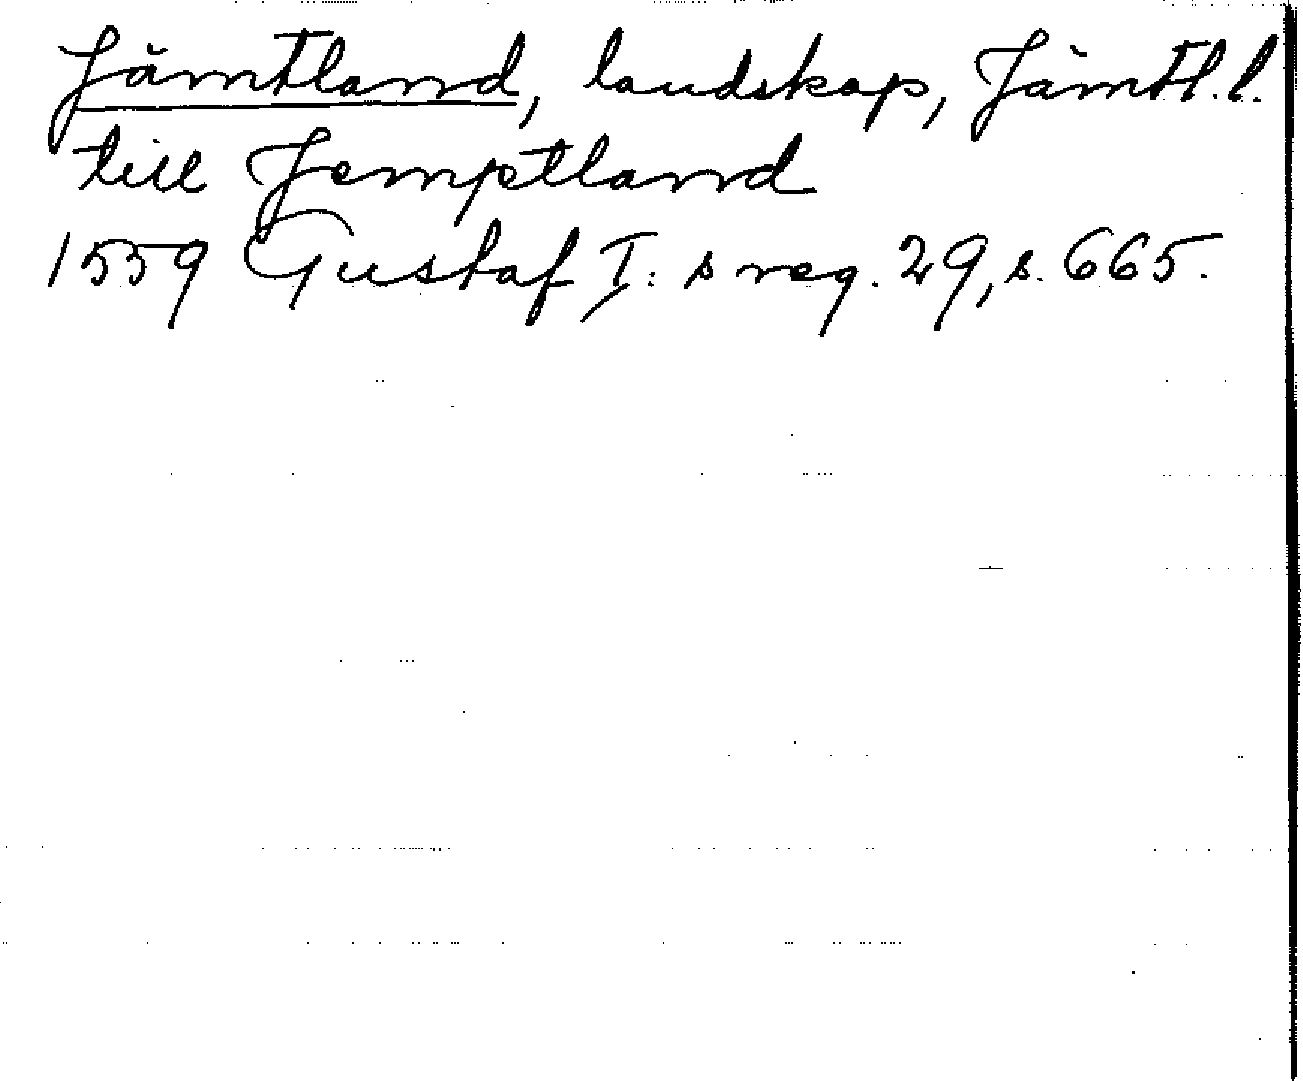 Jämtland, landskap, Jämtl. l.
till Jemptland
1559 Gustaf I:s reg. 29, s. 665.